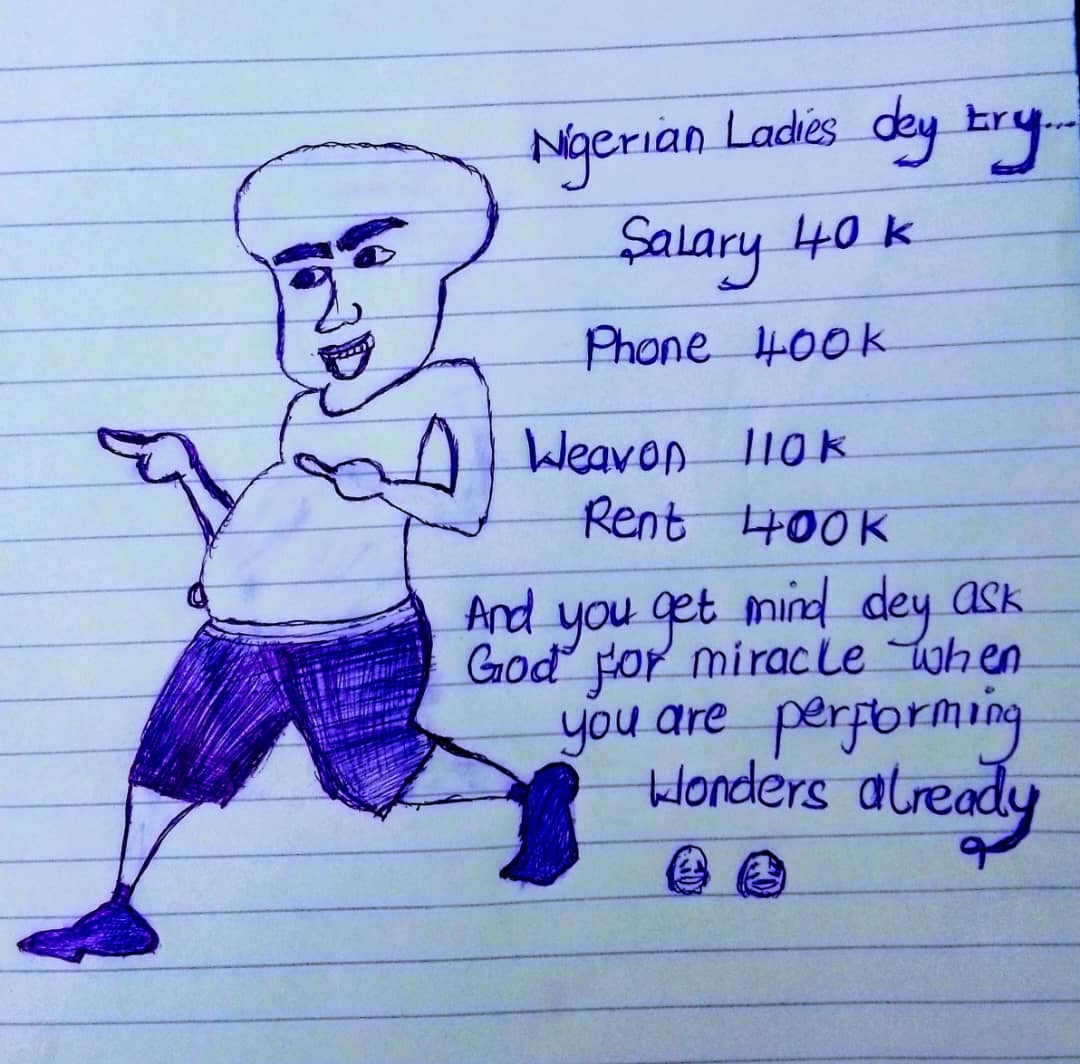 Nigerian Ladies dey try...
Salary 40 k
Phone 400k
Weavon 110k
Rent 400k
And you get mind dey ask
God for miracle when
you are performing
Wonders already